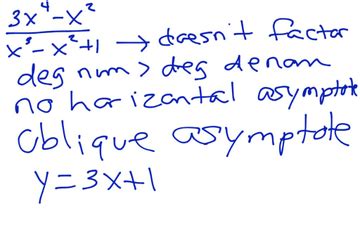 3x⁴-x²
x³-x²+1 → doesn't factor
deg num > deg denom
no horizontal asymptote
oblique asymptote
y=3x+1